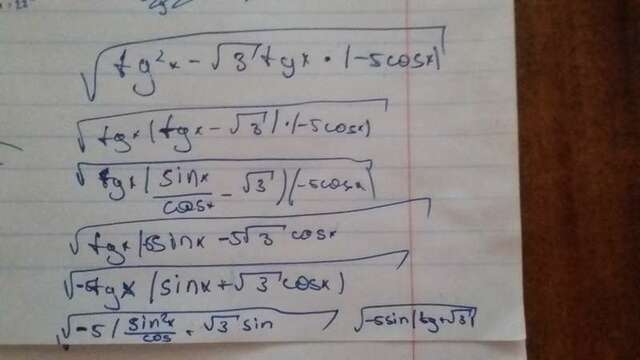 √(tg²x - √3 tgx · (-5cosx)
√(tgx(tgx - √3) · (-5cosx)
√(tgx(sinx/cosx - √3)(-5cosx)
√(tgx(5sinx - 5√3 cosx
√(-5tgx(sinx + √3 cosx)
√(-5(sin²x/cos + √3 sin √(-5sin(tg+√3)